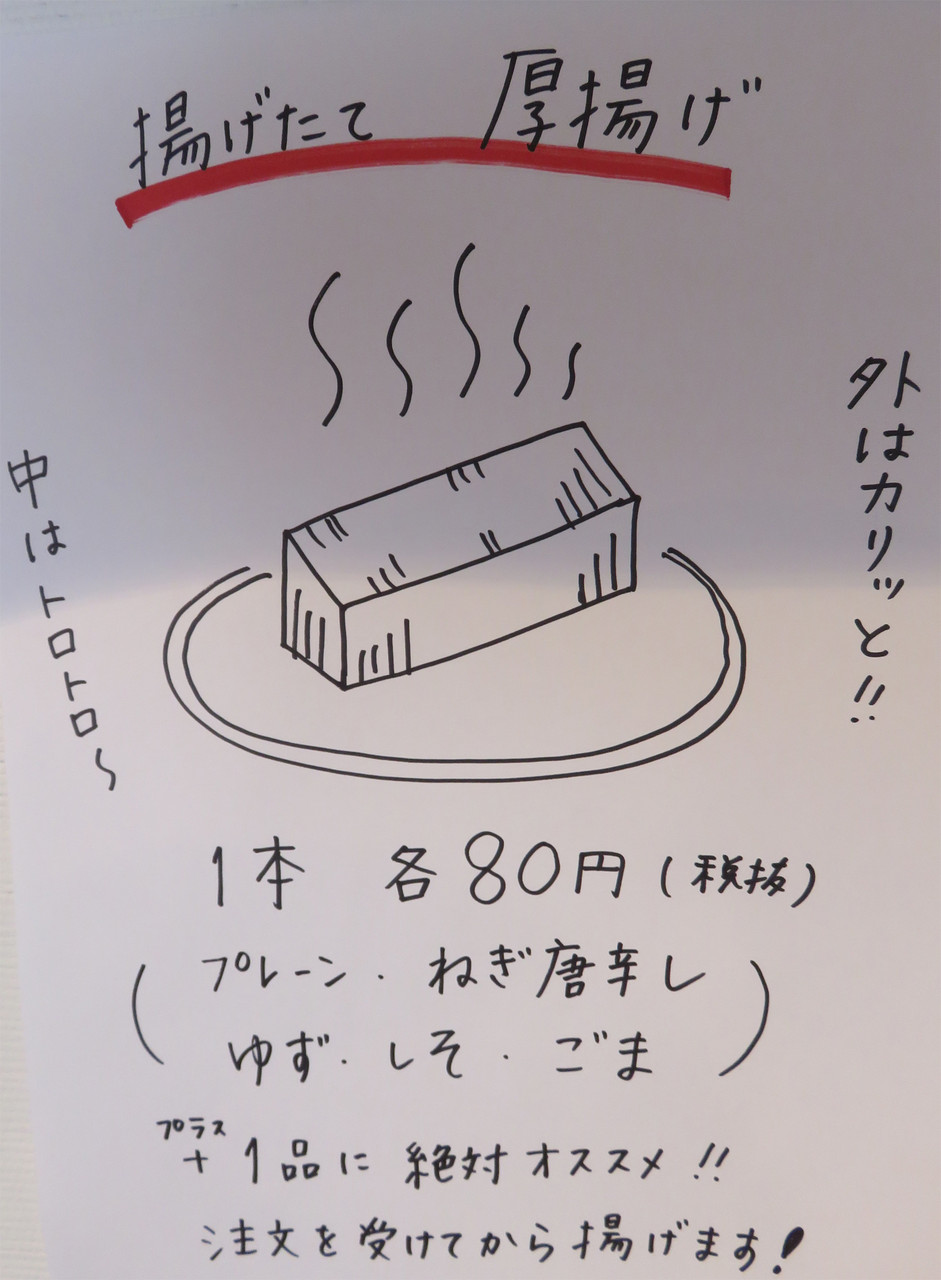 揚げたて 厚揚げ
外はカリッと!!
中はトロトロ〜
1本 各80円(税抜)
(プレーン・ねぎ唐辛し
ゆず・しそ・ごま)
プラス
+1品に絶対オススメ!!
注文を受けてから揚げます!